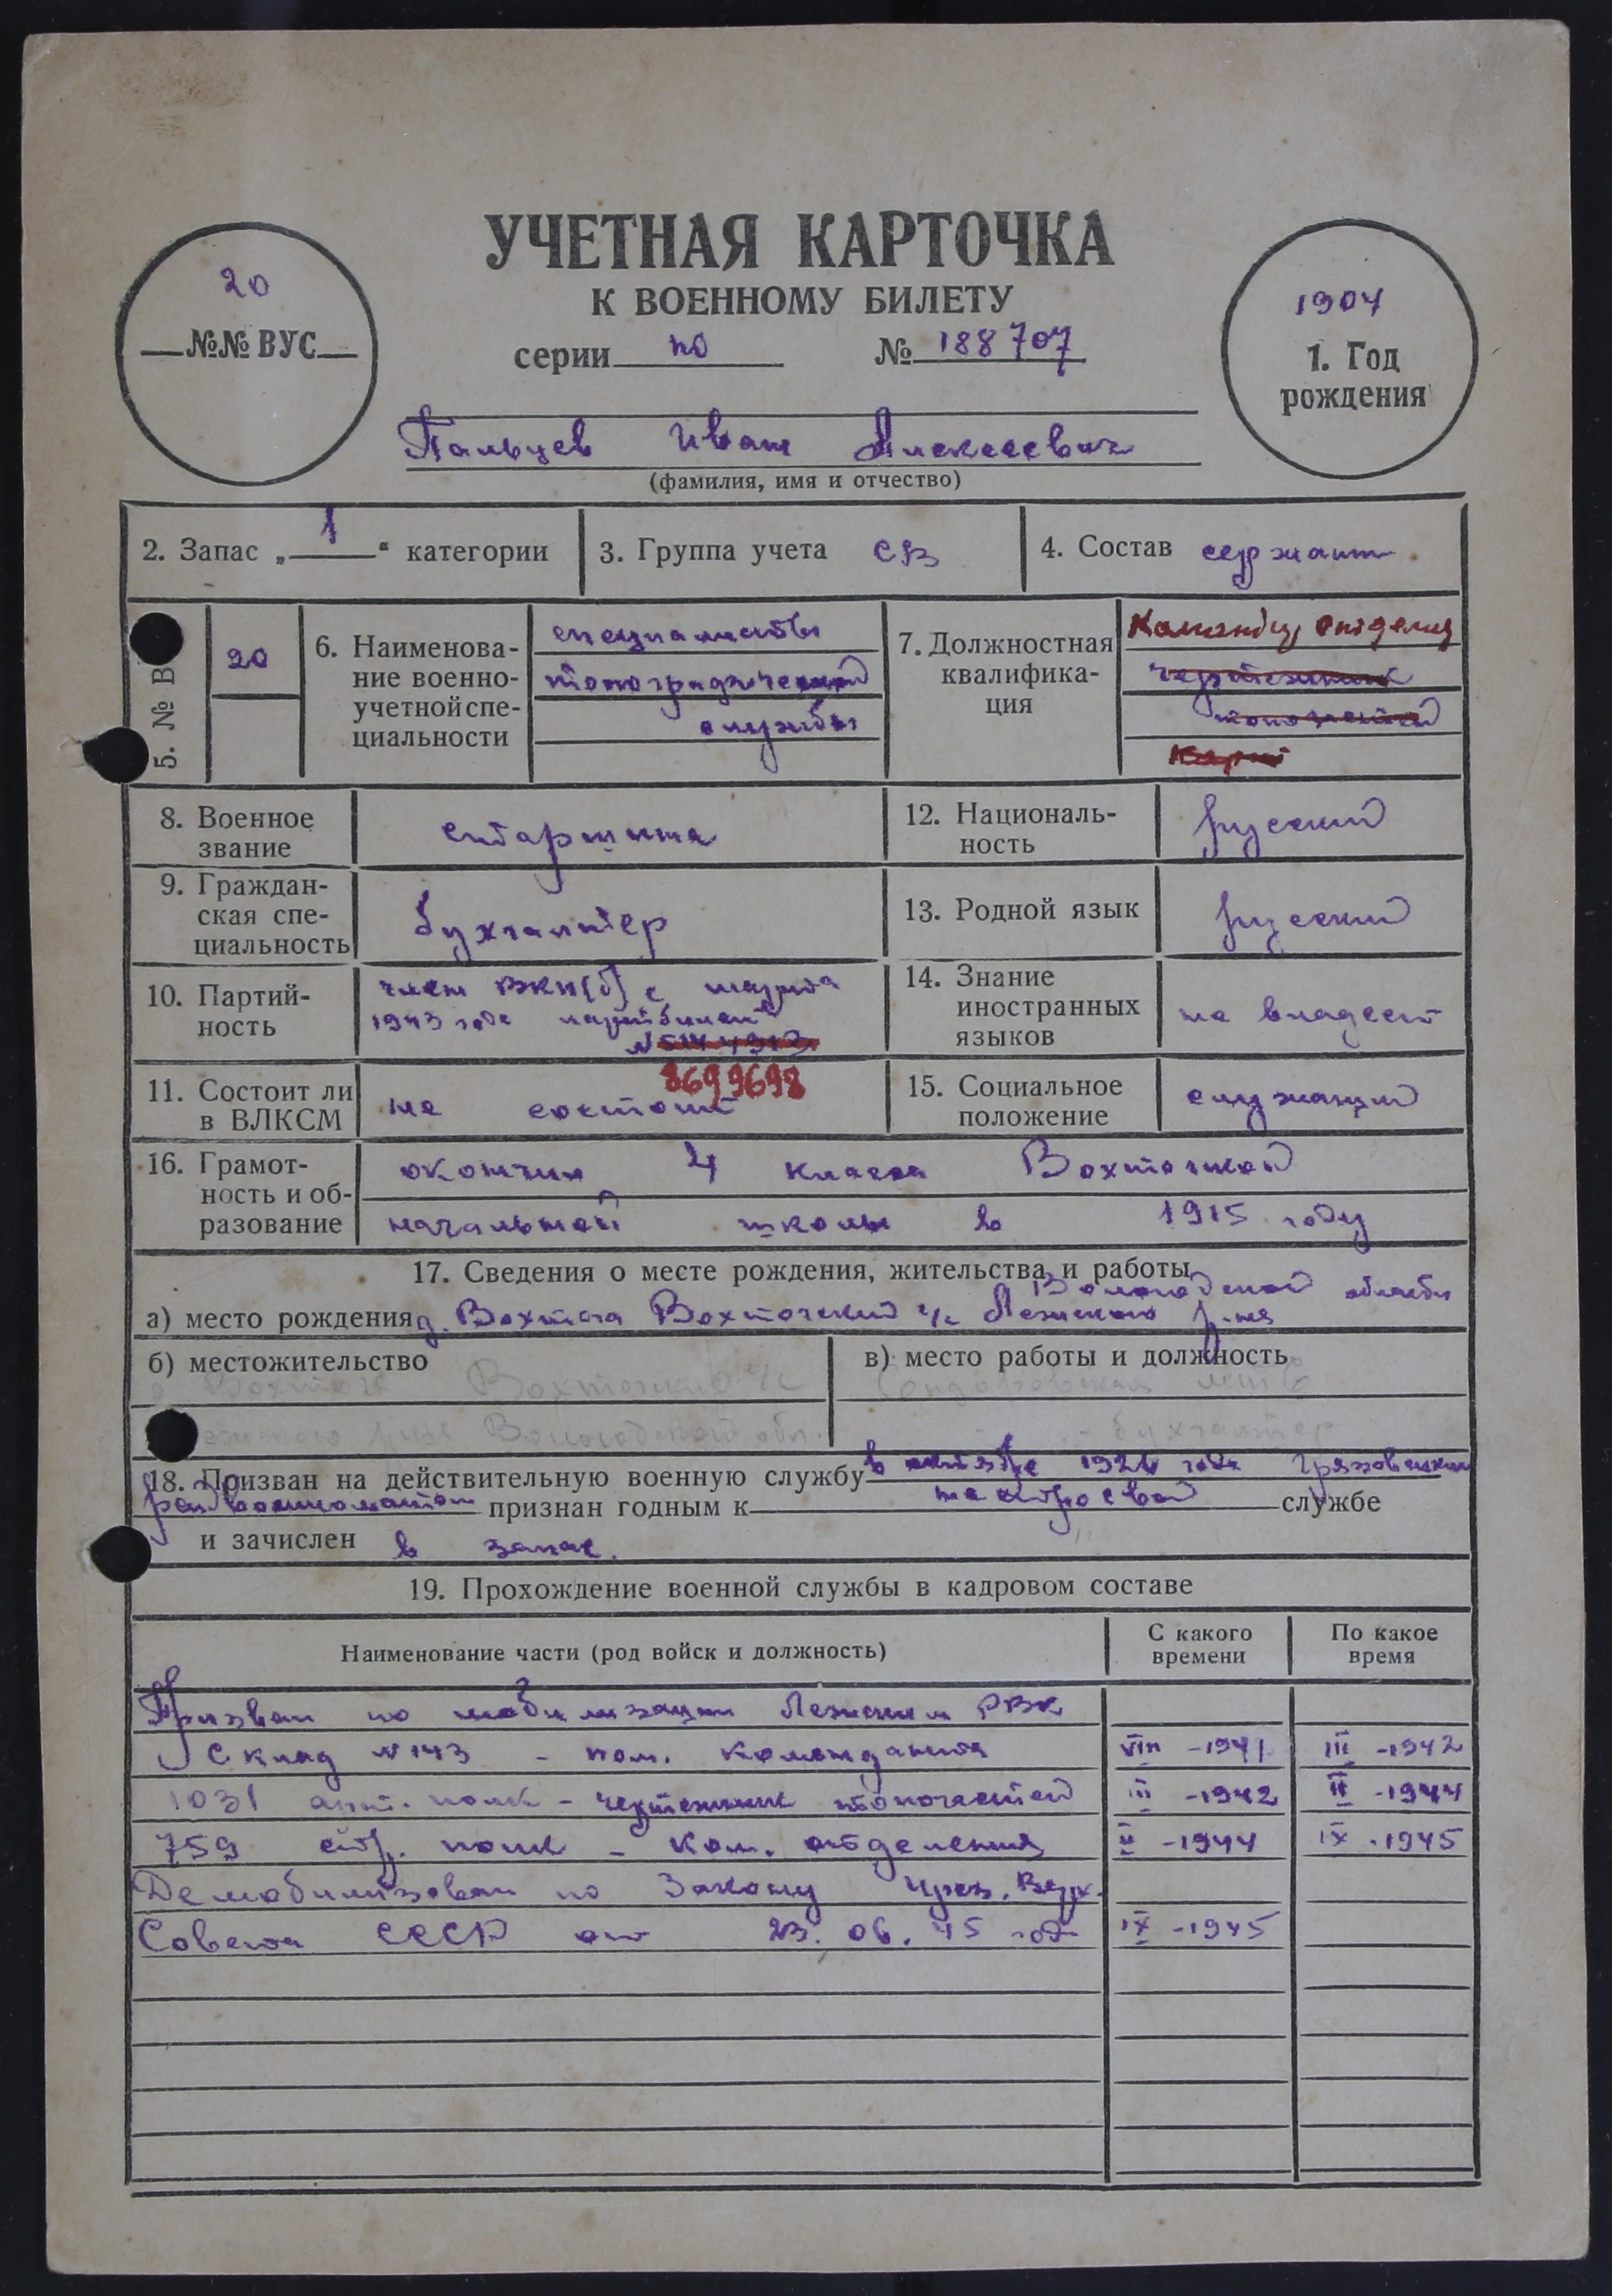 УЧЕТНАЯ КАРТОЧКА
К ВОЕННОМУ БИЛЕТУ
серии по № 188707
20
№№ ВУС
1904
1. Год
рождения
Пальцев Иван Алексеевич
(фамилия, имя и отчество)
2. Запас „1“ категории
3. Группа учета СВ
4. Состав сержант
5. № В
20
6. Наименова-
ние военно-
учетной спе-
циальности
специалисты
топографической
службы
7. Должностная
квалифика-
ция
Командир отделения
чертежник
8. Военное
звание
старшина
12. Националь-
ность
русский
9. Граждан-
ская спе-
циальность
бухгалтер
13. Родной язык
русский
10. Партий-
ность
член ВКП(б) с марта
1943 года партбилет
№
8699698
14. Знание
иностранных
языков
не владеет
11. Состоит ли
в ВЛКСМ
не состоит
15. Социальное
положение
служащий
16. Грамот-
ность и об-
разование
окончил 4 класса Вохтожской
начальной школы в 1915 году
17. Сведения о месте рождения, жительства и работы
Вологодской области
а) место рождения д. Вохтога Вохтожский с/с Лежского р-на
б) местожительство
Вохтога Вохтожский с/с
Вологодской обл.
в) место работы и должность
бухгалтер
18. Призван на действительную военную службу в октябре 192 года Грязовецким
райвоенкоматом признан годным к службе
и зачислен в запас.
19. Прохождение военной службы в кадровом составе
Наименование части (род войск и должность)
С какого
времени
По какое
время
Призван по мобилизации Лежским РВК
Склад № 143 - пом. коменданта VIII - 1941 III - 1942
1031 арт. полк - чертежник топочастей III - 1942 II - 1944
759 стр. полк - ком. отделения II - 1944 IX - 1945
Демобилизован по Закону През. Верх.
Совета СССР от 23.06.45 года IX - 1945